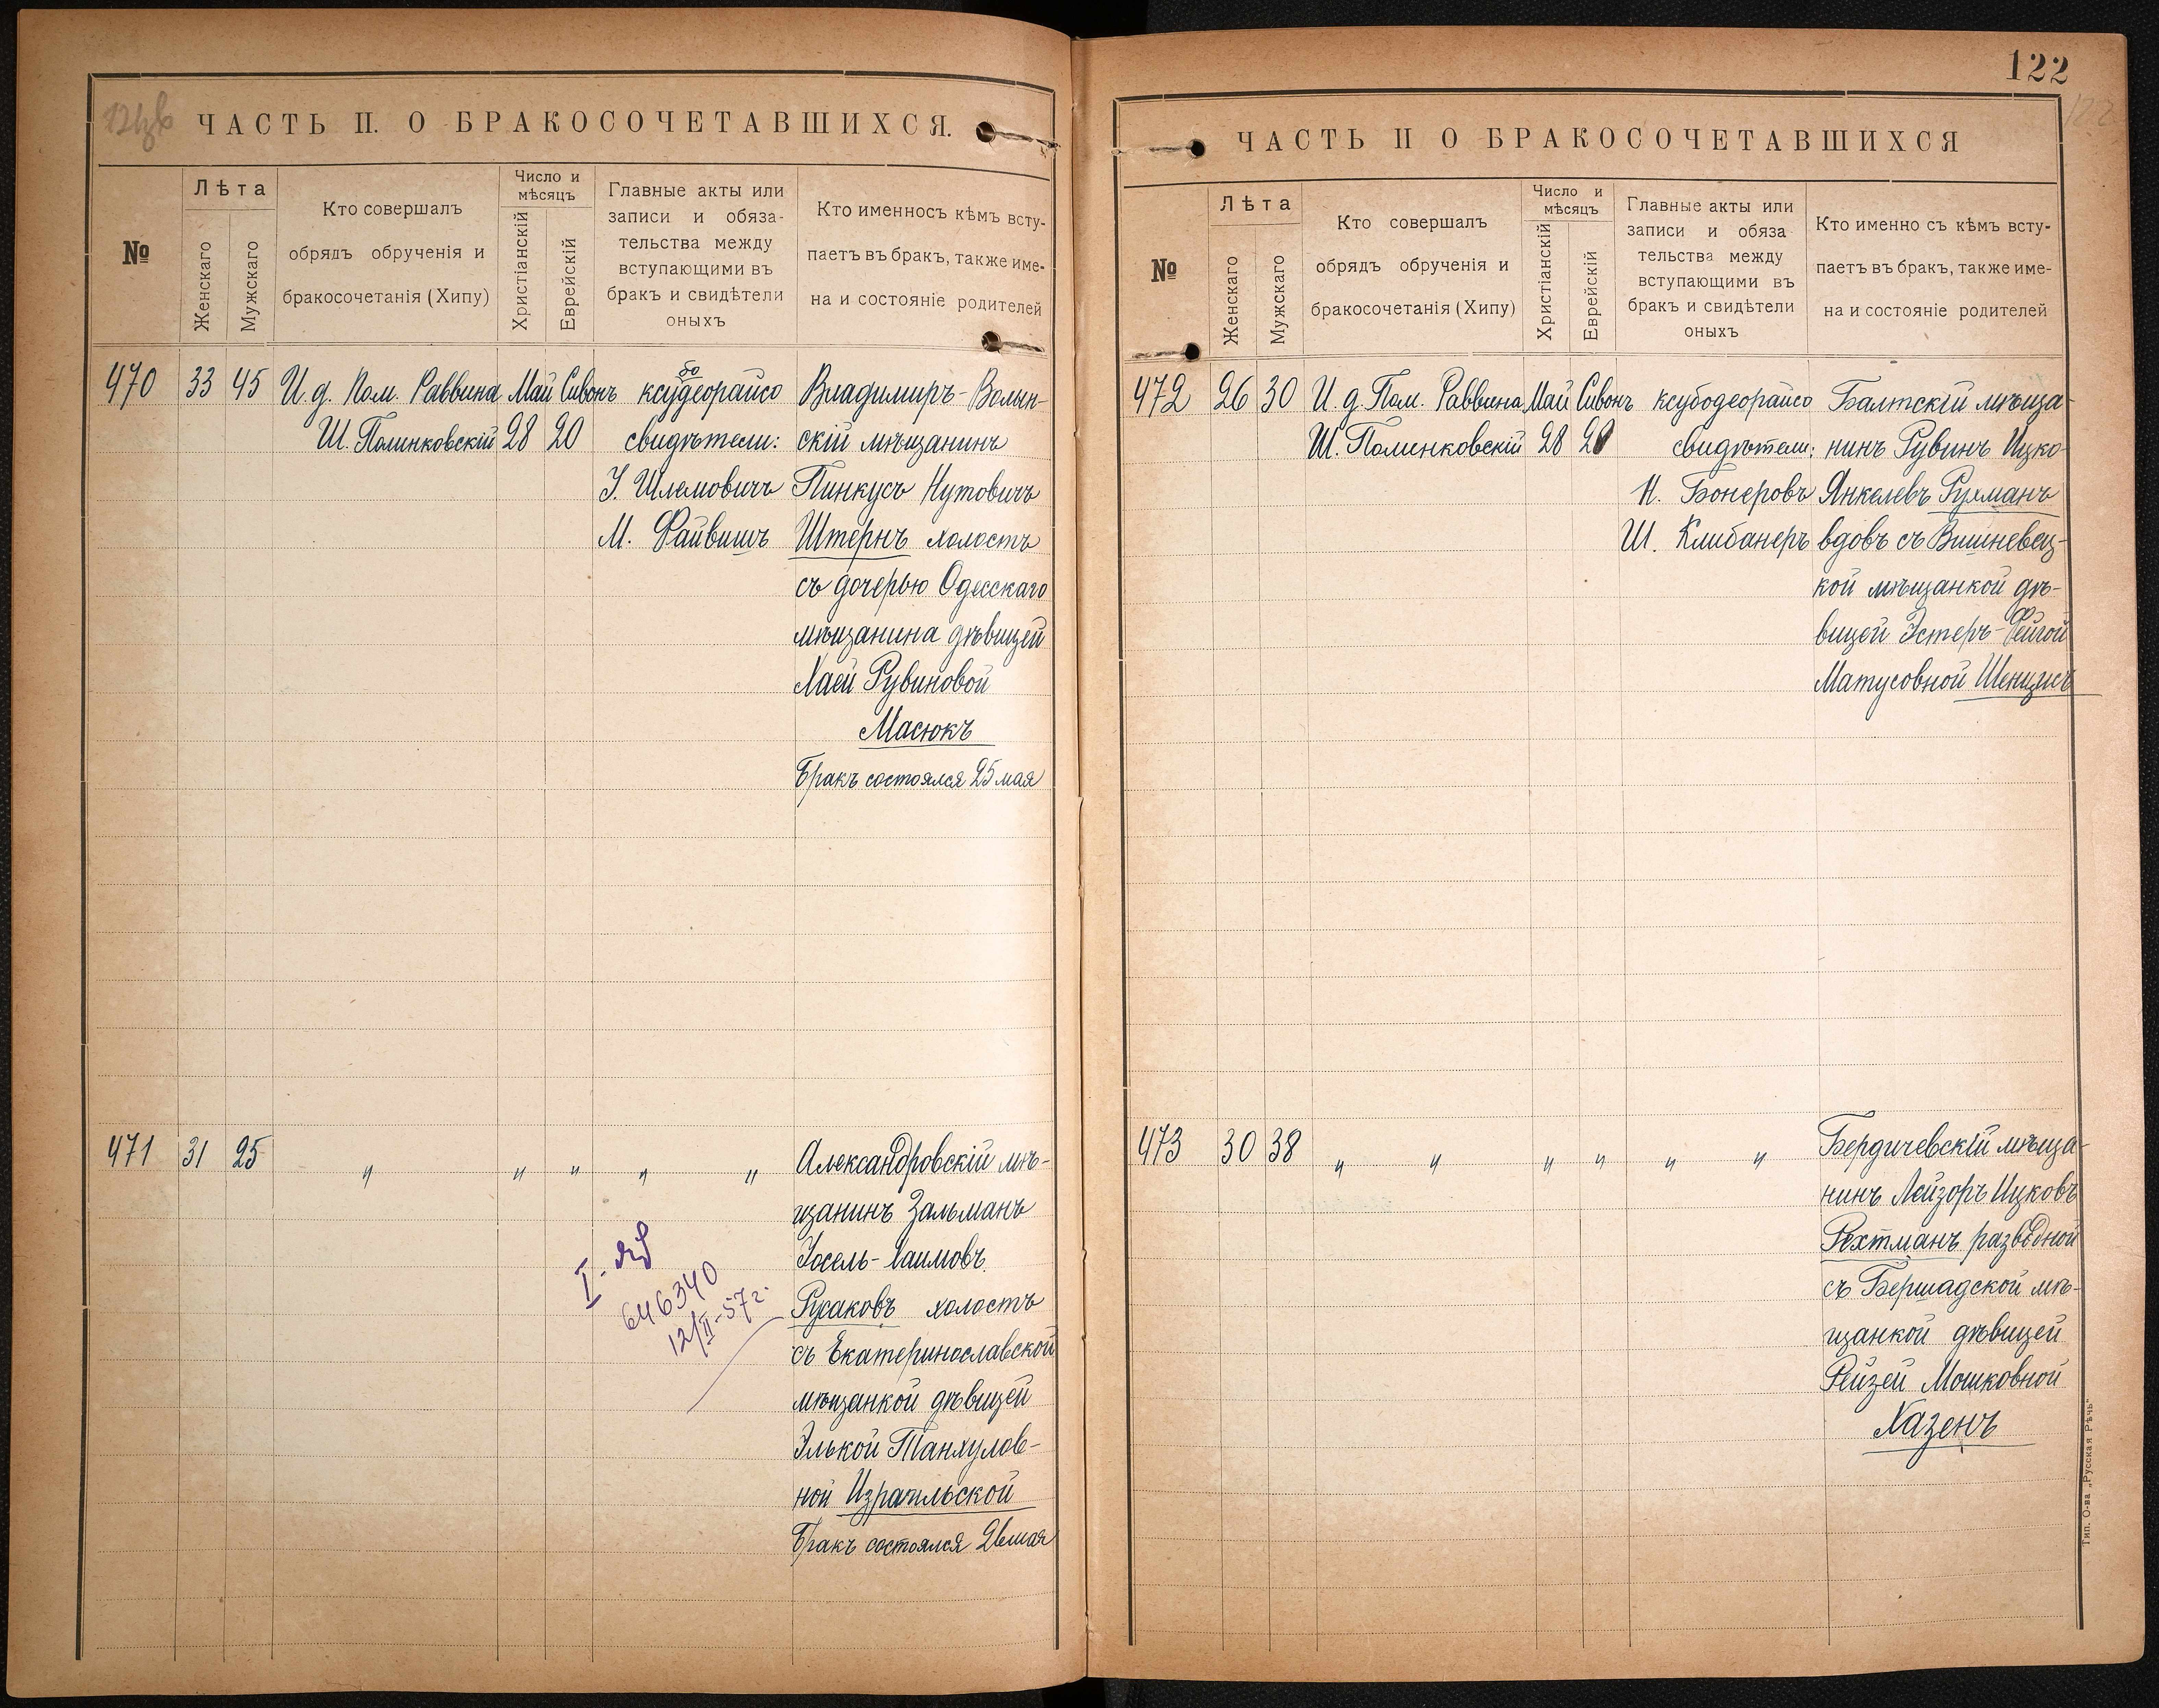 ЧАСТЬ II. О БРАКОСОЧЕТАВШИХСЯ.
№
Лѣта
Женскаго
Мужскаго
Кто совершалъ
обрядъ обрученія и
бракосочетанія (Хипу)
Число и
мѣсяцъ
Христіанскій
Еврейскій
Главные акты или
записи и обяза-
тельства между
вступающими въ
бракъ и свидѣтели
оныхъ
Кто именносъ кѣмъ всту-
паетъ въ бракъ, также име-
на и состояніе родителей
470 33 45 И. д. Пом. Раввина Май Сивонъ ксубодеорайсо Владимиръ-Волын-
Ш. Полинковскій 28 20 свидѣтели: скій мѣщанинъ
І. Шлемовичъ Пинкусъ Нутовичъ
М. Файвишъ Штернъ холостъ
съ дочерью Одесскаго
мѣщанина дѣвицей
Хаей Рувиновой
Масюкъ
Бракъ состоялся 25 мая
471 31 25 " " " " " Александровскій мѣ-
щанинъ Зальманъ
Іосель-Хаимовъ
Русаковъ холостъ
съ Екатеринославской
мѣщанкой дѣвицей
Элькой Танхулов-
ной Израильской
Бракъ состоялся 26 мая
646340
12/II-57 г.
122
ЧАСТЬ II О БРАКОСОЧЕТАВШИХСЯ
№
Лѣта
Женскаго
Мужскаго
Кто совершалъ
обрядъ обрученія и
бракосочетанія (Хипу)
Число и
мѣсяцъ
Христіанскій
Еврейскій
Главные акты или
записи и обяза
тельства между
вступающими въ
бракъ и свидѣтели
оныхъ
Кто именно съ кѣмъ всту-
паетъ въ бракъ, также име-
на и состояніе родителей
472 26 30 И. д. Пом. Раввина Май Сивонъ ксубодеорайсо Балтскій мѣща-
Ш. Полинковскій 28 20 свидѣтели: нинъ Рувинъ Ицко-
Н. Бонеровъ Янкелевъ Рухманъ
Ш. Клибанеръ вдовъ съ Вишневец-
кой мѣщанкой дѣ-
вицей Эстеръ-Фейгой
Матусовной
473 30 38 " " " " " " Бердичевскій мѣща-
нинъ Лейзоръ Ицковъ
Рехтманъ разводной
съ Бершадской мѣ-
щанкой дѣвицей
Рейзей Мошковной
Хазенъ
Тип. О-ва „Русская Рѣчь"